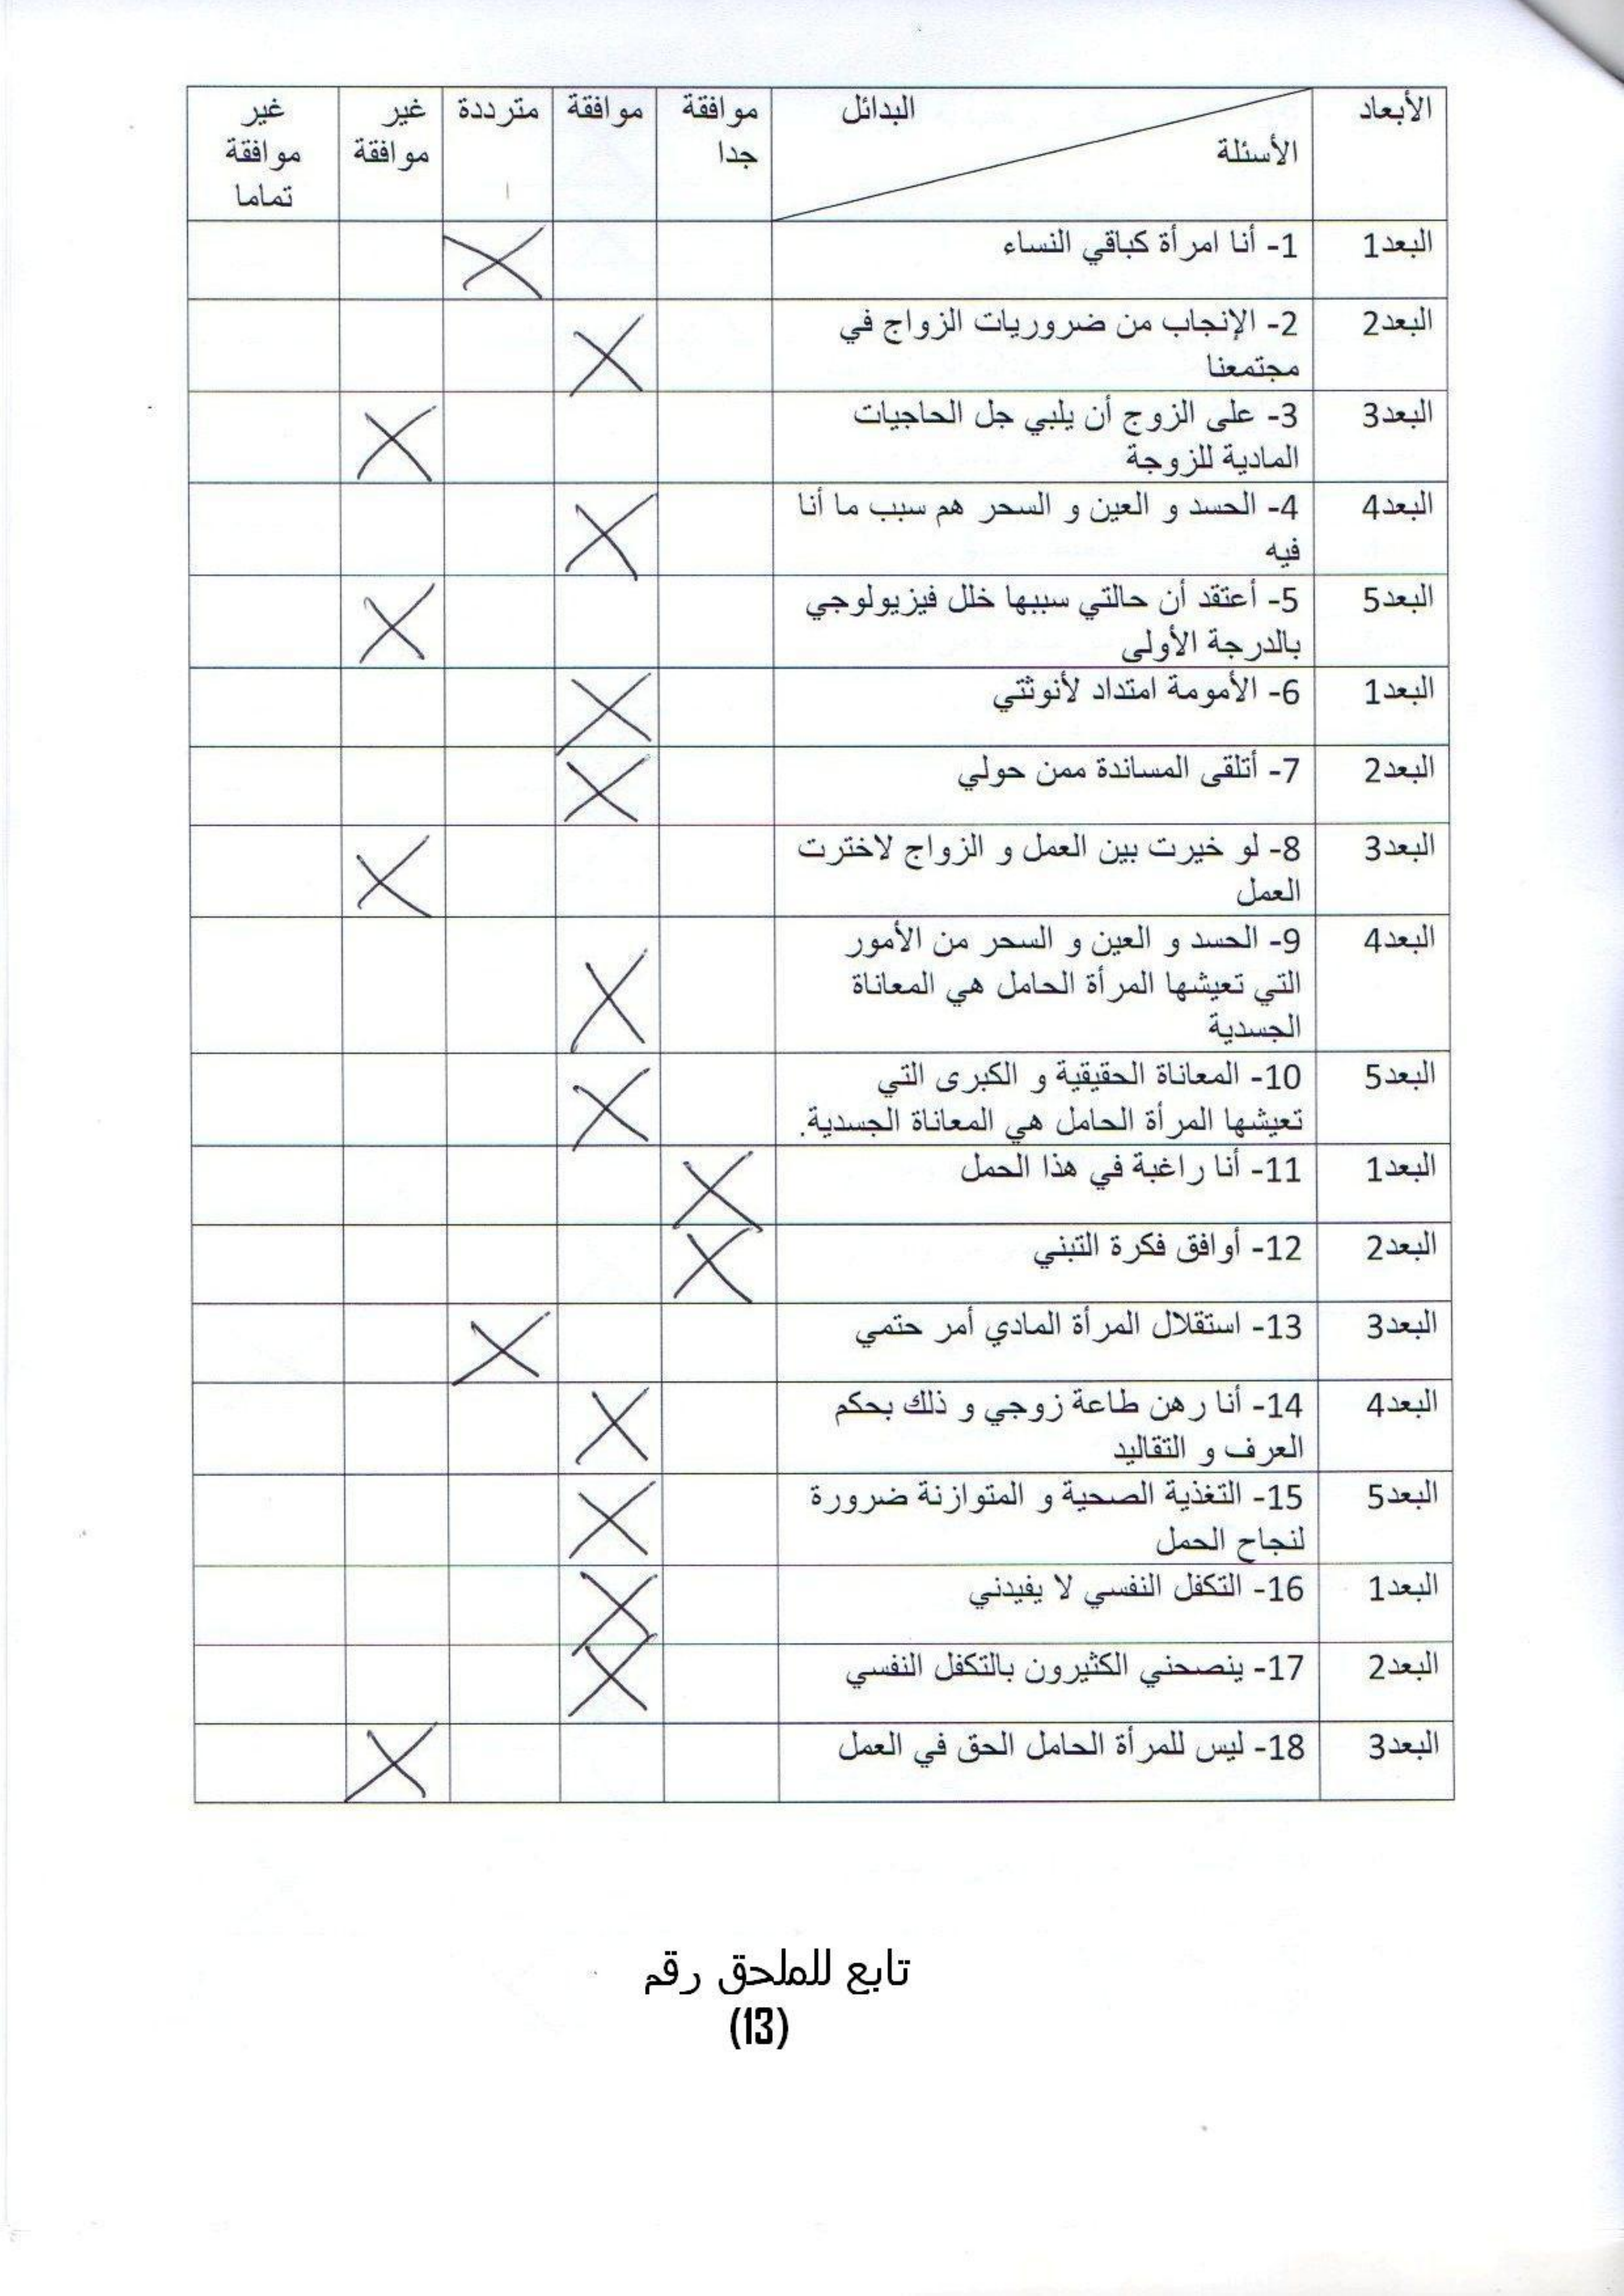 الأبعاد البدائل موافقة موافقة مترددة غير غير
الأسئلة جدا موافقة موافقة
تماما
البعد1 1- أنا امرأة كباقي النساء X
البعد2 2- الإنجاب من ضروريات الزواج في X
مجتمعنا
البعد3 3- على الزوج أن يلبي جل الحاجيات X
المادية للزوجة
البعد4 4- الحسد و العين و السحر هم سبب ما أنا X
فيه
البعد5 5- أعتقد أن حالتي سببها خلل فيزيولوجي X
بالدرجة الأولى
البعد1 6- الأمومة امتداد لأنوثتي X
البعد2 7- أتلقى المساندة ممن حولي X
البعد3 8- لو خيرت بين العمل و الزواج لاخترت X
العمل
البعد4 9- الحسد و العين و السحر من الأمور X
التي تعيشها المرأة الحامل هي المعاناة
الجسدية
البعد5 10- المعاناة الحقيقية و الكبرى التي X
تعيشها المرأة الحامل هي المعاناة الجسدية.
البعد1 11- أنا راغبة في هذا الحمل X
البعد2 12- أوافق فكرة التبني X
البعد3 13- استقلال المرأة المادي أمر حتمي X
البعد4 14- أنا رهن طاعة زوجي و ذلك بحكم X
العرف و التقاليد
البعد5 15- التغذية الصحية و المتوازنة ضرورة X
لنجاح الحمل
البعد1 16- التكفل النفسي لا يفيدني X
البعد2 17- ينصحني الكثيرون بالتكفل النفسي X
البعد3 18- ليس للمرأة الحامل الحق في العمل X
تابع للملحق رقم
(13)